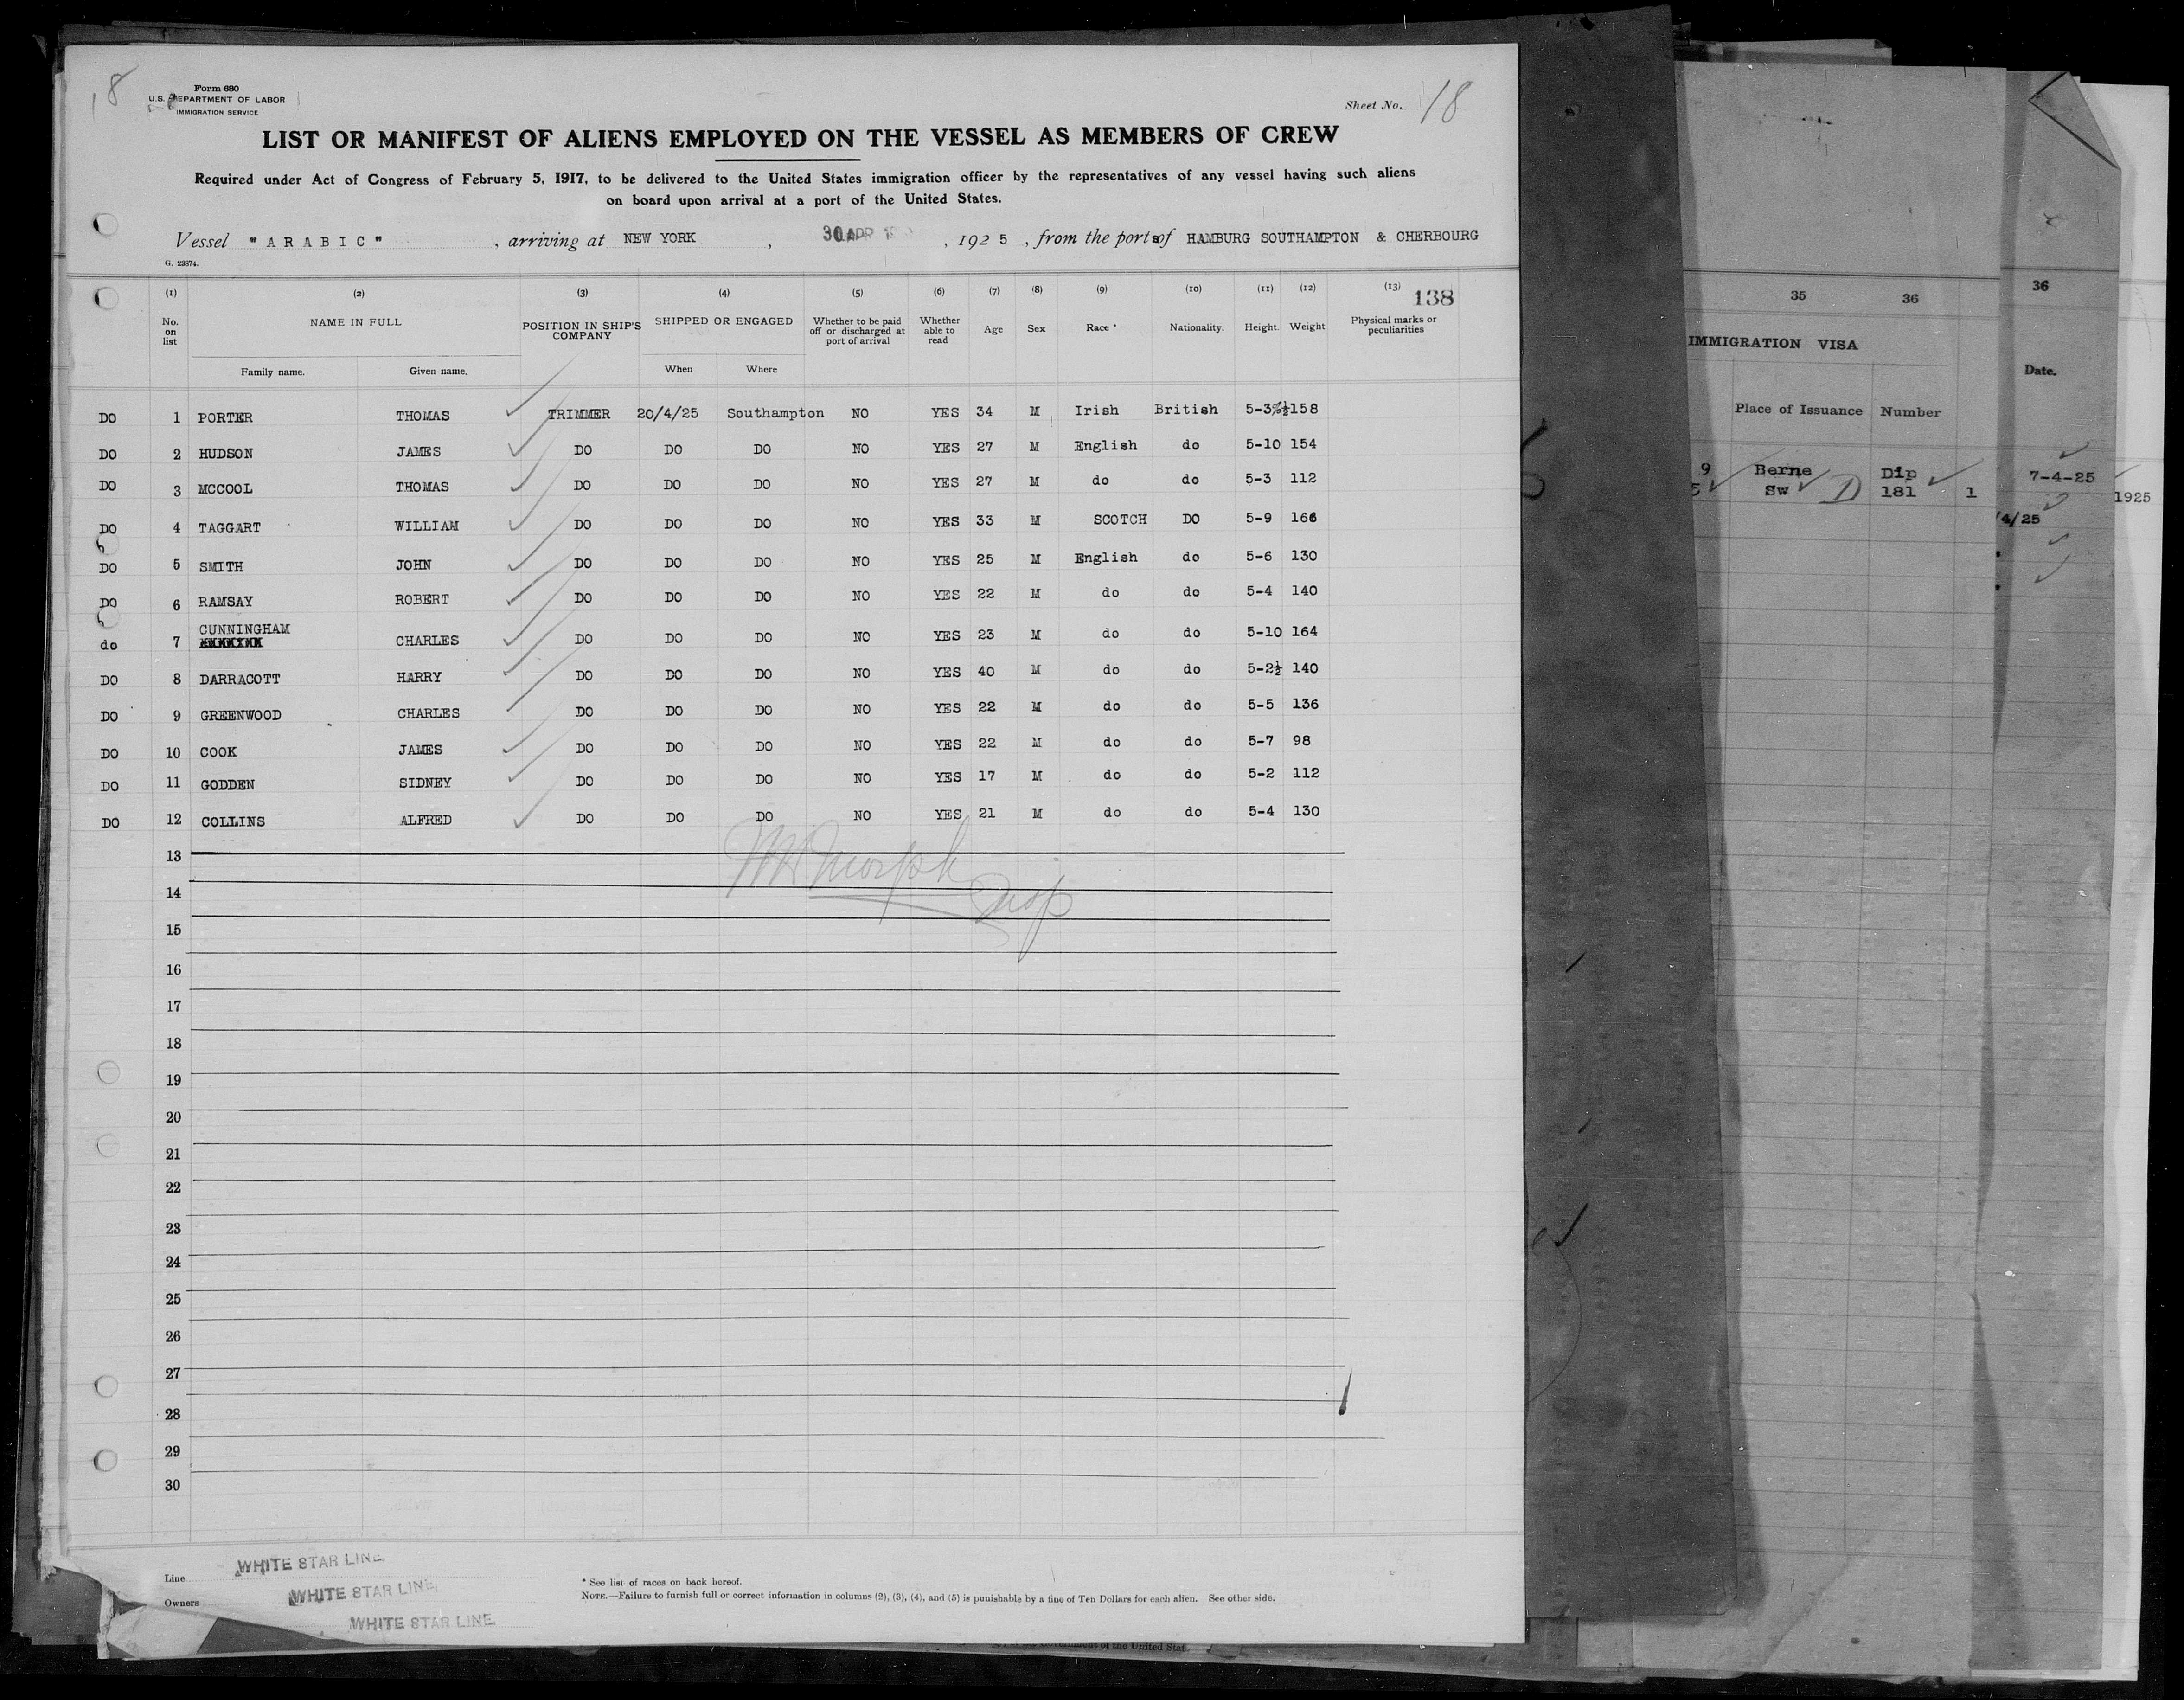 18
Form 680
U.S. DEPARTMENT OF LABOR
IMMIGRATION SERVICE
Sheet No. 18
LIST OR MANIFEST OF ALIENS EMPLOYED ON THE VESSEL AS MEMBERS OF CREW
Required under Act of Congress of February 5, 1917, to be delivered to the United States immigration officer by the representatives of any vessel having such aliens
on board upon arrival at a port of the United States.
Vessel "ARABIC", arriving at NEW YORK, 30 APR, 1925, from the ports of HAMBURG SOUTHAMPTON & CHERBOURG
G. 23874.
(1) (2) (3) (4) (5) (6) (7) (8) (9) (10) (11) (12) (13) 138
No. on list NAME IN FULL POSITION IN SHIP'S COMPANY SHIPPED OR ENGAGED Whether to be paid off or discharged at port of arrival Whether able to read Age Sex Race* Nationality. Height Weight Physical marks or peculiarities
Family name. Given name. When Where
DO 1 PORTER THOMAS TRIMMER 20/4/25 Southampton NO YES 34 M Irish British 5-3½ 158
DO 2 HUDSON JAMES DO DO DO NO YES 27 M English do 5-10 154
DO 3 MCCOOL THOMAS DO DO DO NO YES 27 M do do 5-3 112
DO 4 TAGGART WILLIAM DO DO DO NO YES 33 M SCOTCH DO 5-9 166
DO 5 SMITH JOHN DO DO DO NO YES 25 M English do 5-6 130
DO 6 RAMSAY ROBERT DO DO DO NO YES 22 M do do 5-4 140
do 7 CUNNINGHAM CHARLES DO DO DO NO YES 23 M do do 5-10 164
DO 8 DARRACOTT HARRY DO DO DO NO YES 40 M do do 5-2½ 140
DO 9 GREENWOOD CHARLES DO DO DO NO YES 22 M do do 5-5 136
DO 10 COOK JAMES DO DO DO NO YES 22 M do do 5-7 98
DO 11 GODDEN SIDNEY DO DO DO NO YES 17 M do do 5-2 112
DO 12 COLLINS ALFRED DO DO DO NO YES 21 M do do 5-4 130
13
14
15
16
17
18
19
20
21
22
23
24
25
26
27
28
29
30
Line WHITE STAR LINE
Owners WHITE STAR LINE
WHITE STAR LINE
* See list of races on back hereof.
NOTE.—Failure to furnish full or correct information in columns (2), (3), (4), and (5) is punishable by a fine of Ten Dollars for each alien. See other side.
35 36
IMMIGRATION VISA
Place of Issuance Number
9 Berne Dip
5 Sw D 181 1
36
Date.
7-4-25
/4/25
1925
of the United Stat